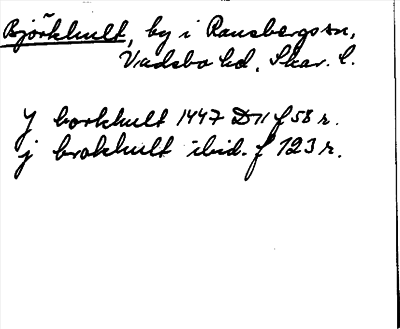 Björkhult, by i Ransbergs sn,
Vadsbo hd, Skar. l.
J borkhult 1447 D 11 f 58 r.
j brokhult ibid. f 123 r.